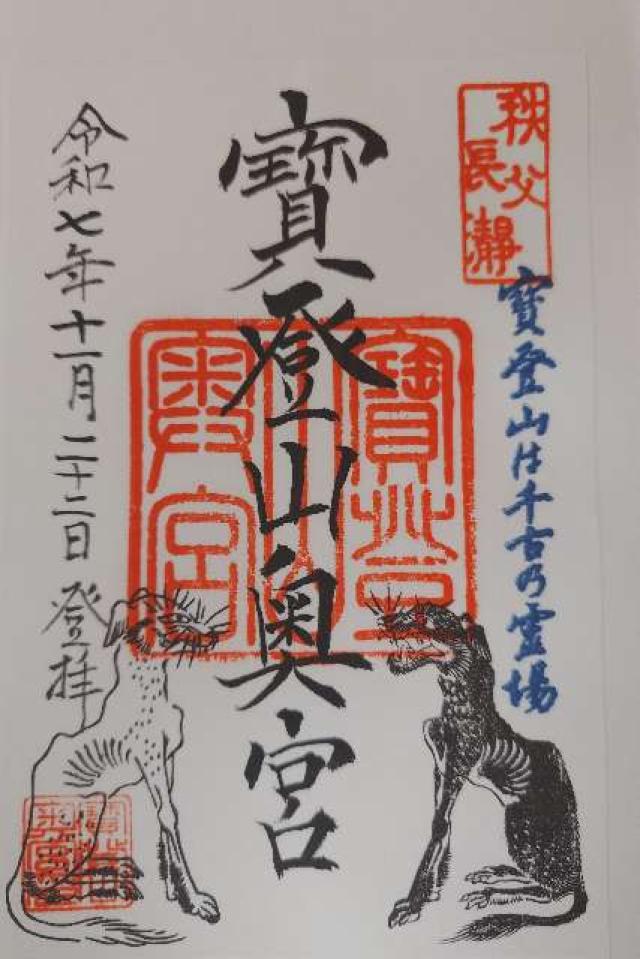 秩父
長瀞
寳登山は千古の霊場
寳登山奥宮
寳登
山
奥宮
令和七年十一月二十二日 登拝